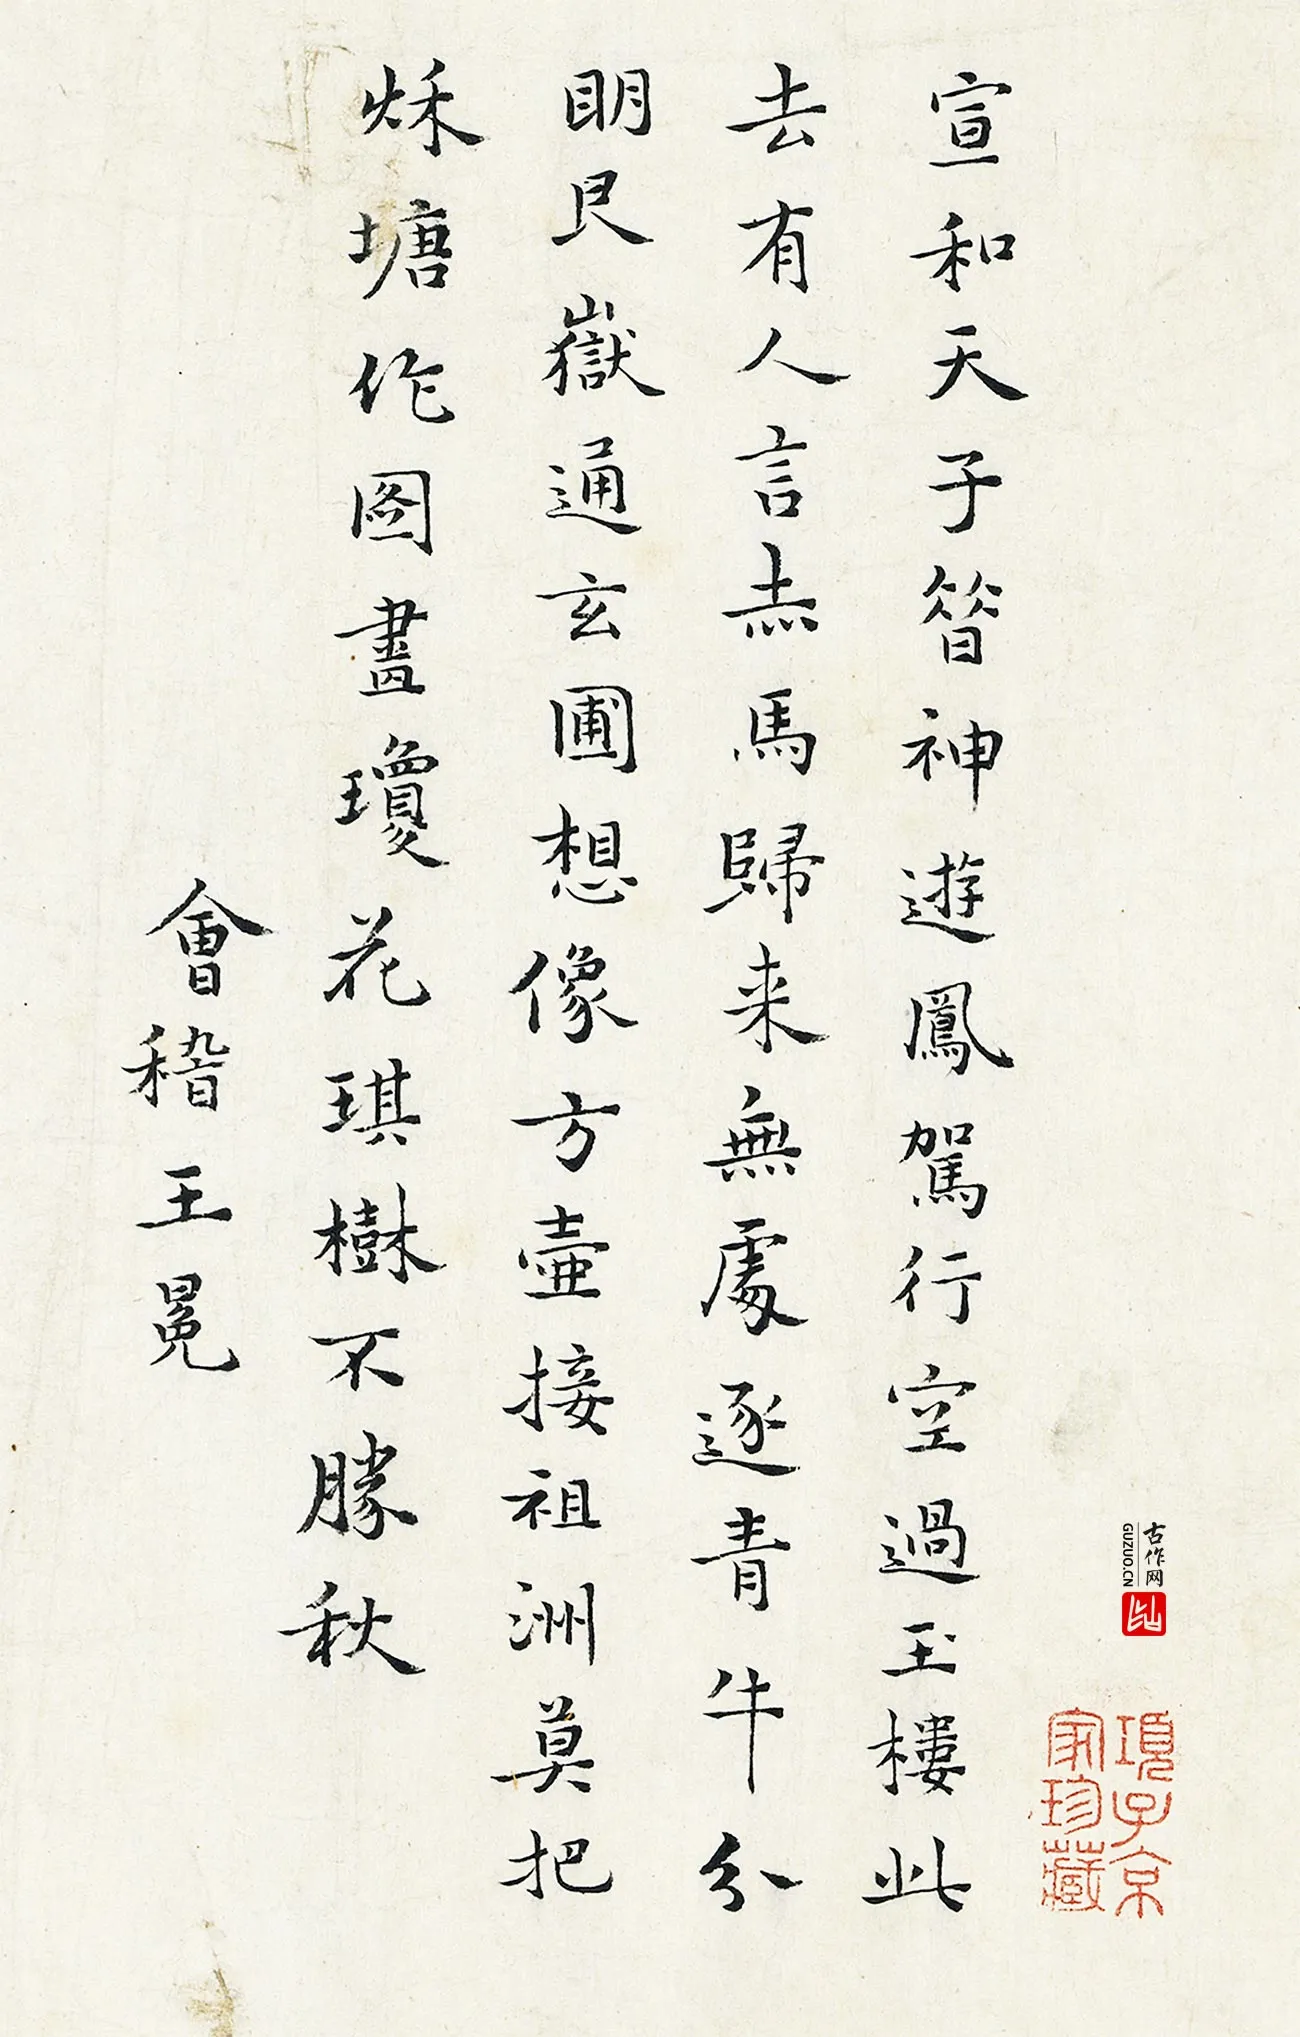 宣和天子昝神遊鳳駕行空過玉樓此
去有人言赤馬歸来無處逐青牛分
明艮嶽通玄圃想像方壷接祖洲莫把
秌塘作圖畫瓊花琪樹不勝秋
會稽王冕
古作网
GUZUO.CN
項子京
家珍藏